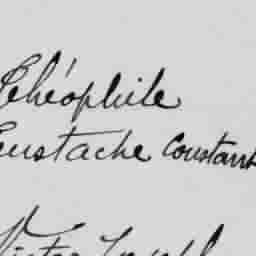 Théophile
Eustache Constant
Victor